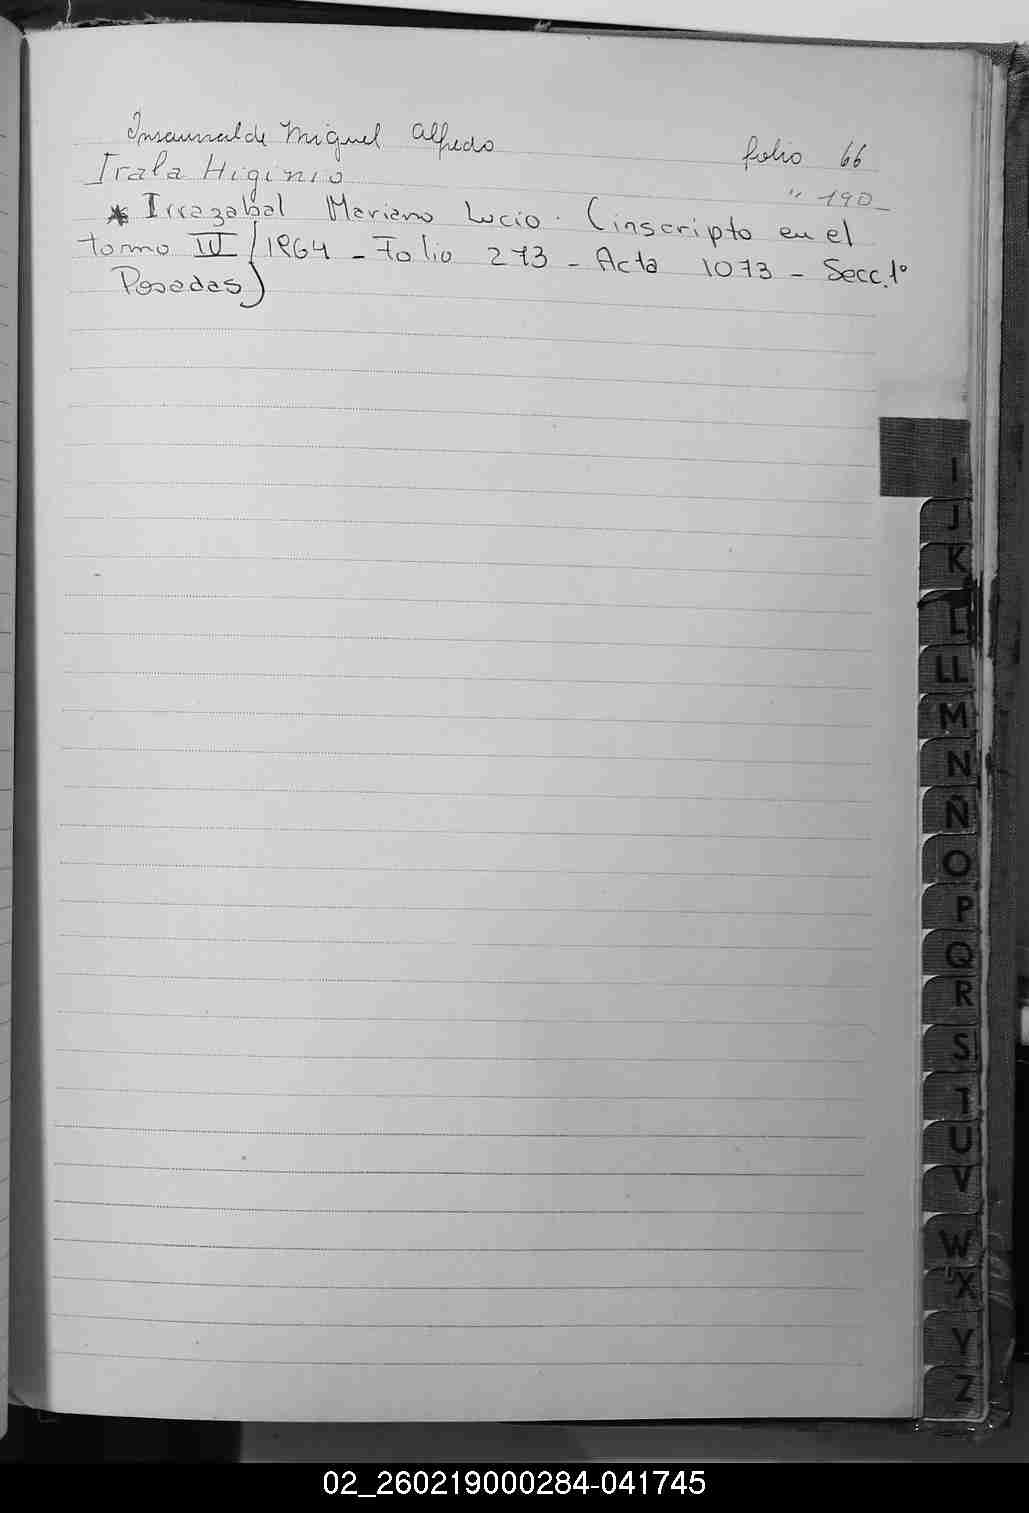 Insaurralde Miguel Alfredo folio 66
Irala Higinio " 190_
* Irrazabal Mariano Lucio. (inscripto en el
tomo IV / 1964 - Folio 273 - Acta 1073 - Secc. 1°
Posadas)
I
J
K
L
LL
M
N
Ñ
O
P
Q
R
S
T
U
V
W
X
Y
Z
02_260219000284-041745